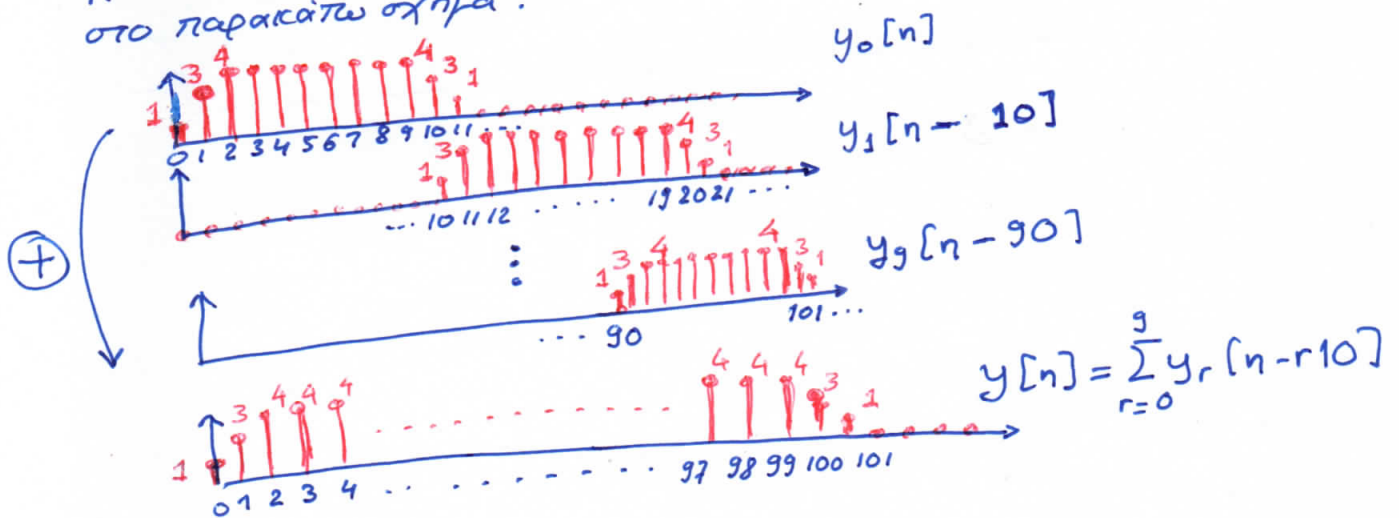 στο παρακάτω σχήμα.
1 3 4 4 3 1
y₀[n]
0 1 2 3 4 5 6 7 8 9 10 11 ...
1 3 4 3 1
y₁[n - 10]
... 10 11 12 ..... 19 20 21 ...
+
1 3 4 4 3 1
y₉[n-90]
... 90 101...
1 3 4 4 4 4 4 4 3 1
y[n] = \sum_{r=0}^{9} y_r[n-r10]
0 1 2 3 4 .. - - - - - - - 97 98 99 100 101